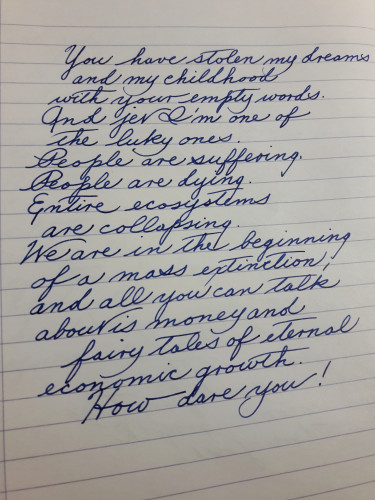 You have stolen my dreams
and my childhood
with your empty words.
And jet I'm one of
the luky ones.
People are suffering.
People are dying.
Entire ecosystems
are collapsing.
We are in the beginning
of a mass extinction,
and all you can talk
about is money and
fairy tales of eternal
economic growth.
How dare you!